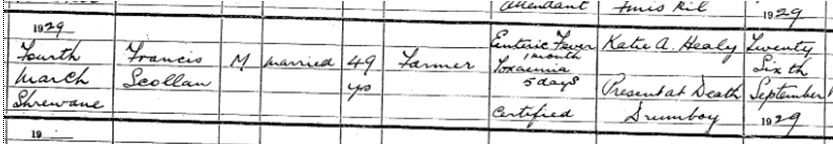 Attendant
1929
1929
Fourth Francis M Married 49 Farmer Enteric Fever Katie A. Healy Twenty
March Scollan yrs 1 month Sixth
Shrewane Toxaemia Present at Death September
5 days
Certified Drumboy 1929
19